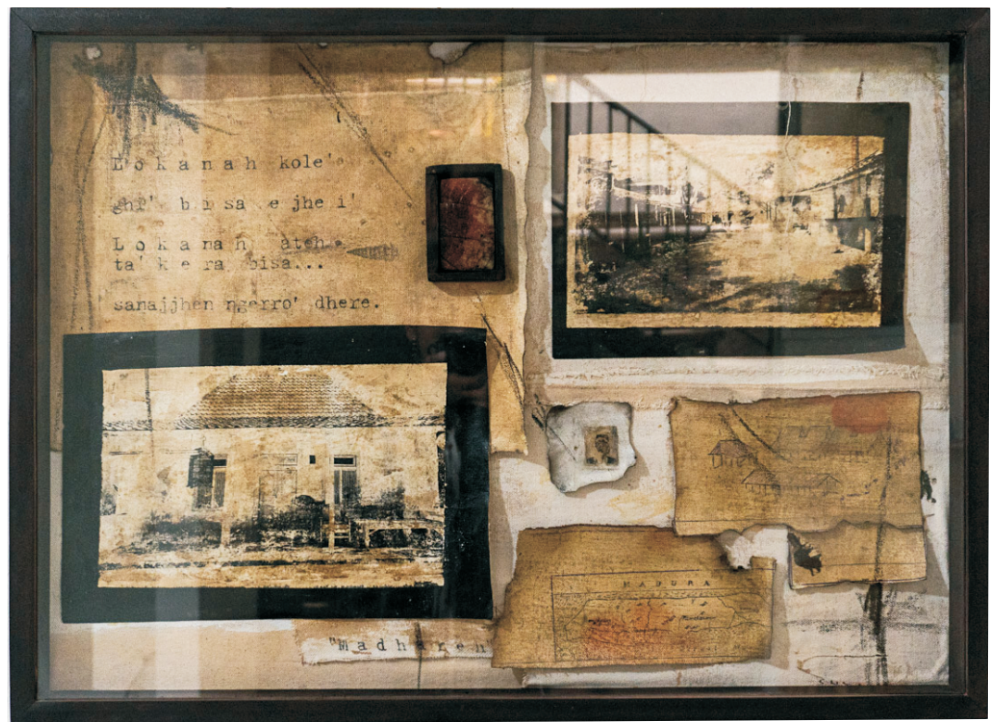 Lokanah kole'
ghi' bisa e jhe i'
Lokanah ateh
ta' kera bisa...
sanajjhen ngerro' dhere.
MADURA
"Madhareh